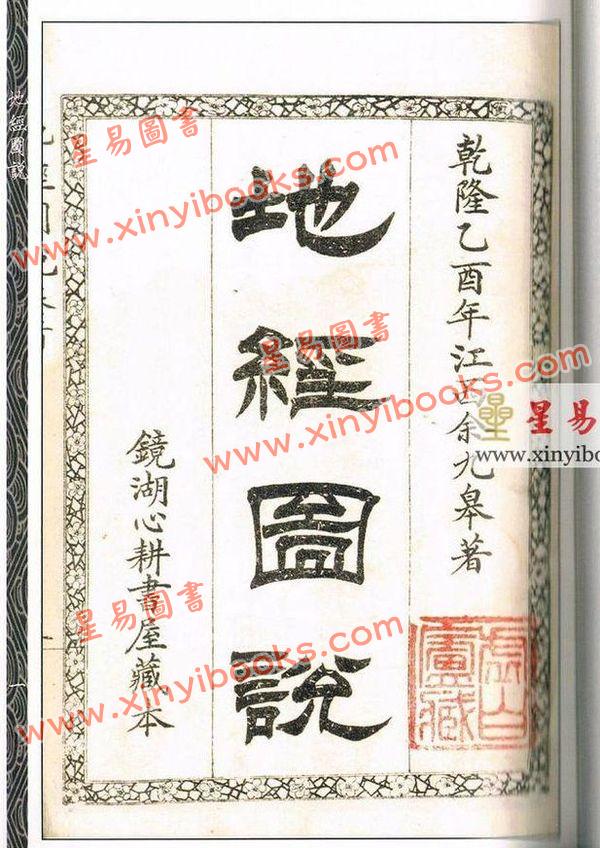 乾隆乙酉年江西余九皋著
地經圖說
鏡湖心耕書屋藏本
地經圖說
一
星易圖書
www.xinyibooks.com
星易圖書
www.xinyibooks.com
星易圖書
www.xinyibooks.com
星易
www.xinyibo